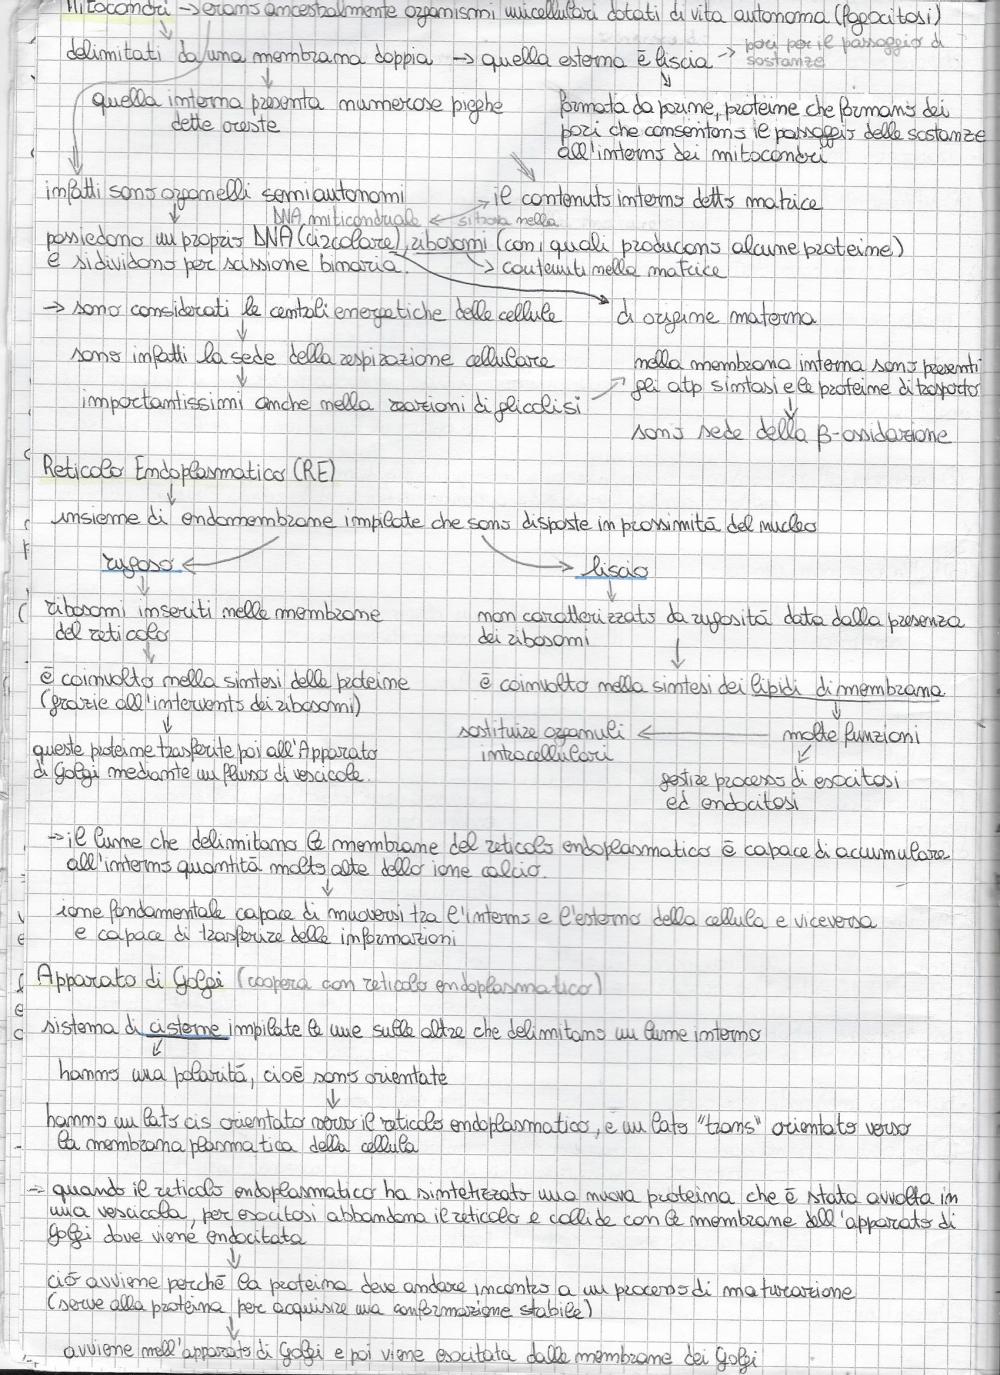 Mitocondri → erano ancestralmente organismi unicellulari dotati di vita autonoma (fagocitosi)
delimitati da una membrana doppia → quella esterna è liscia → pori per il passaggio di sostanze
quella interna presenta numerose pieghe
dette creste
formata da porine, proteine che formano dei
pori che consentono il passaggio delle sostanze
all'interno dei mitocondri
infatti sono organelli semiautonomi
il contenuto interno detto matrice
DNA miticonduale ← situato nella
possiedono un proprio DNA (circolare), ribosomi (con i quali producono alcune proteine)
e si dividono per scissione binaria.
→ contenuti nella matrice
→ sono considerati le centrali energetiche delle cellule
di origine materna
sono infatti la sede della respirazione cellulare
importantissimi anche nella reazioni di glicolisi
nella membrana interna sono presenti
gli atp sintasi e le proteine di trasporto
sono sede della β-ossidazione
Reticolo Endoplasmatico (RE)
insieme di endomembrane impilate che sono disposte in prossimità del nucleo
rugoso
liscio
ribosomi inseriti nelle membrane
del reticolo
non caratterizzato da rugosità data dalla presenza
dei ribosomi
è coinvolto nella sintesi delle proteine
(grazie all'intervento dei ribosomi)
è coinvolto nella sintesi dei lipidi di membrana
queste proteine trasferite poi all'Apparato
di Golgi mediante un flusso di vescicole.
molte funzioni
sostituire organuli
intracellulari
gestire processo di esocitosi
ed endocitosi
→ il lume che delimitano le membrane del reticolo endoplasmatico è capace di accumulare
all'interno quantità molto alte dello ione calcio.
ione fondamentale capace di muoversi tra l'interno e l'esterno della cellula e viceversa
e capace di trasferire delle informazioni
Apparato di Golgi (coopera con reticolo endoplasmatico)
sistema di cisterne impilate le une sulle altre che delimitano un lume interno
hanno una polarità, cioè sono orientate
hanno un lato cis orientato verso il reticolo endoplasmatico, e un lato "trans" orientato verso
la membrana plasmatica della cellula
→ quando il reticolo endoplasmatico ha sintetizzato una nuova proteina che è stata avvolta in
una vescicola, per esocitosi abbandona il reticolo e collide con le membrane dell'apparato di
Golgi dove viene endocitata
ciò avviene perchè la proteina deve andare incontro a un processo di maturazione
(serve alla proteina per acquisire una conformazione stabile)
avviene nell'apparato di Golgi e poi viene esocitata dalle membrane dei Golgi